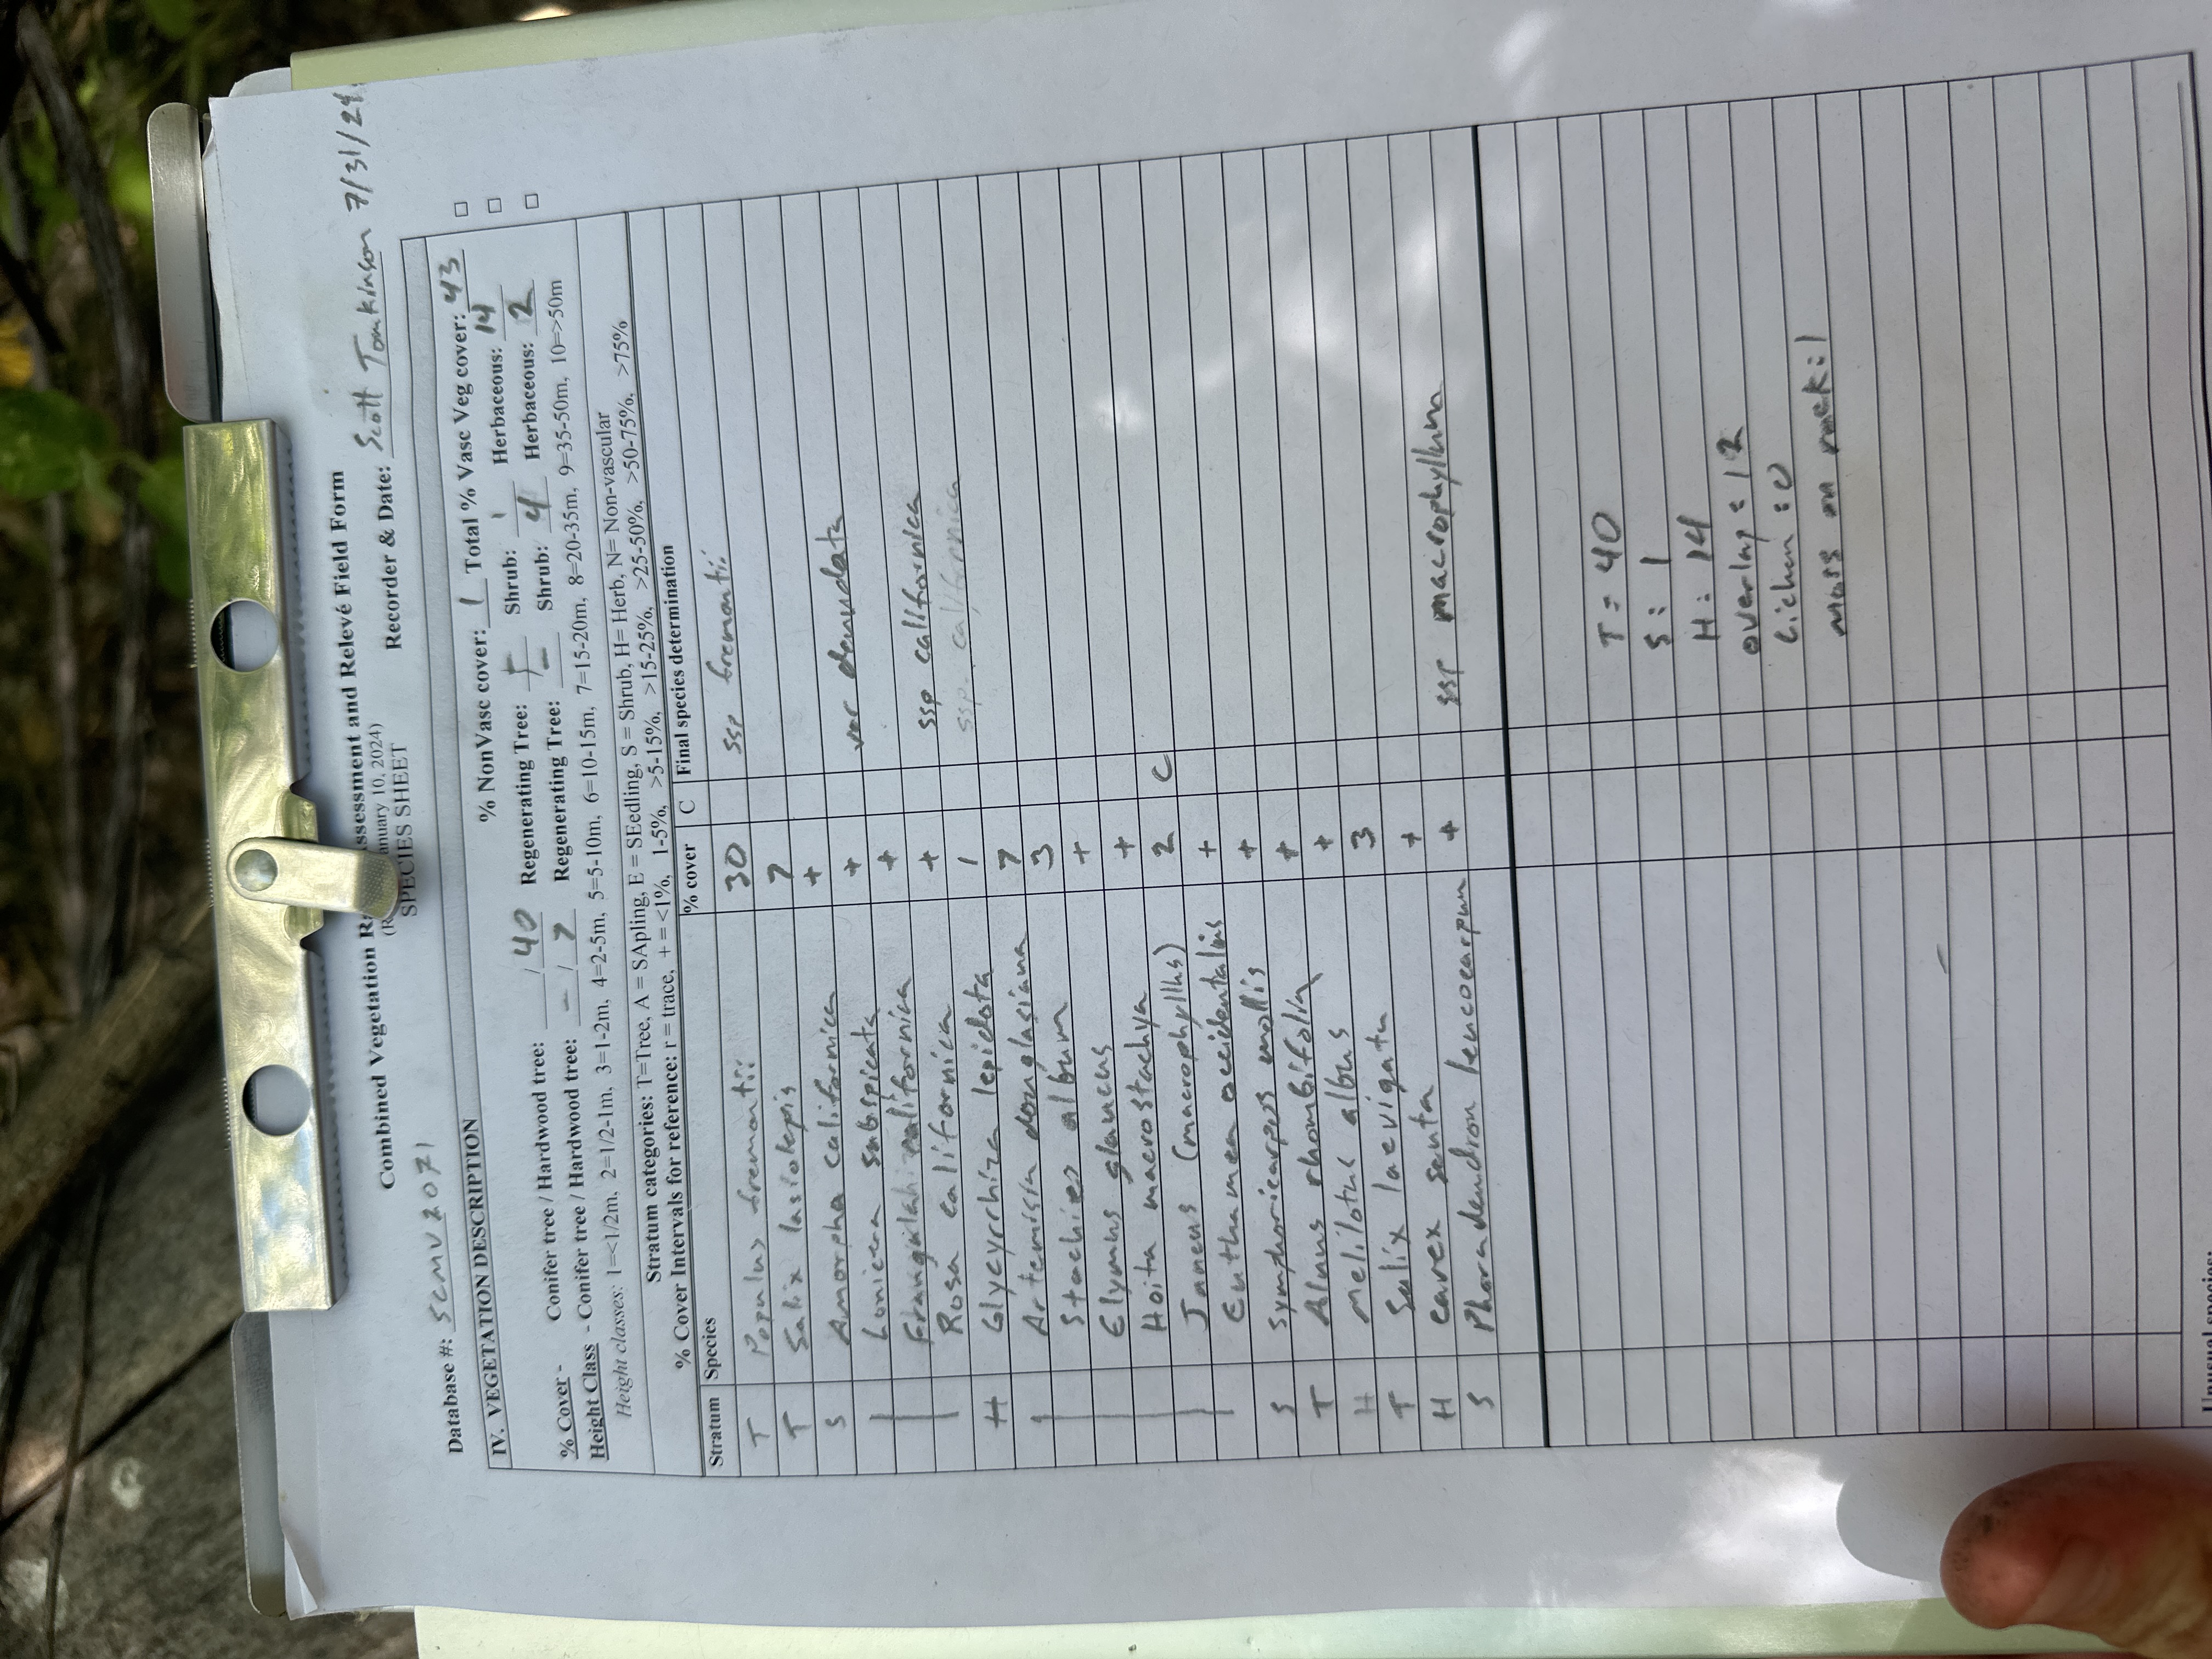 Combined Vegetation R ssessment and Relevé Field Form
(R anuary 10, 2024)
SPECIES SHEET
Database #: SCMV2071 Recorder & Date: Scott Tomkinson 7/31/24
IV. VEGETATION DESCRIPTION
% NonVasc cover: 1 Total % Vasc Veg cover: 43
% Cover - Conifer tree / Hardwood tree: / 40 Regenerating Tree: Shrub: 1 Herbaceous: 14
Height Class - Conifer tree / Hardwood tree: - / 7 Regenerating Tree: - Shrub: 4 Herbaceous: 2
Height classes: 1=<1/2m, 2=1/2-1m, 3=1-2m, 4=2-5m, 5=5-10m, 6=10-15m, 7=15-20m, 8=20-35m, 9=35-50m, 10=>50m
Stratum categories: T=Tree, A = SApling, E = SEedling, S = Shrub, H= Herb, N= Non-vascular
% Cover Intervals for reference: r = trace, + = <1%, 1-5%, >5-15%, >15-25%, >25-50%, >50-75%, >75%
Stratum Species % cover C Final species determination
T Populus fremontii 30 ssp fremontii
T Salix lasiolepis 7
S Amorpha californica +
Lonicera subspicata + var denudata
Frangula californica + ssp californica
Rosa californica + ssp. californica
H Glycyrrhiza lepidota 1
Artemisia douglasiana 7
Stachies album 3
Elymus glaucus +
Hoita macrostachya +
Juncus (macrophyllus) 2 C
Euthamea occidentalis +
S Symphoricarpos mollis +
T Alnus rhombifolia +
H melilotus albus +
T Salix laevigata 3
H carex senta +
S Phoradendron leucocarpum + ssp macrophyllum
T = 40
S: 1
H: 14
overlap: 12
Lichen: 0
moss
Unusual species: